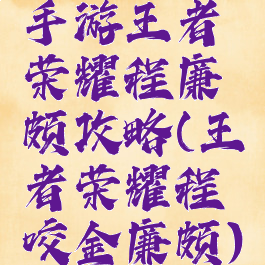 手游王者
荣耀程廉
颇攻略(王
者荣耀程
咬金廉颇)